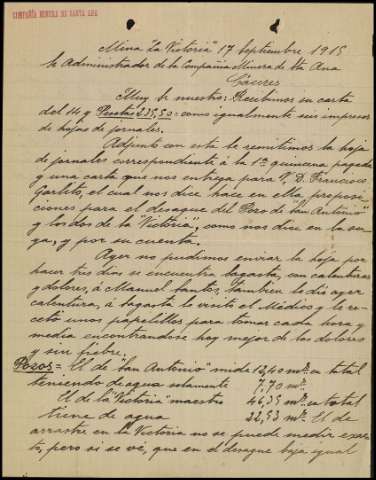 COMPAÑÍA MINERA DE SANTA ANA
Mina "La Victoria" 17 Septiembre 1915
Sr Administrador de la Compañia Minera de Sta Ana
Cáceres
Muy Sr nuestro: Recibimos su carta
del 14 y Pesetas 235,50 = como igualmente seis impresos
de hojas de jornales.
Adjunto con esta le remitimos la hoja
de jornales correspondiente á la 1ª quincena pagada
y una carta que nos entrega para V. D. Francisco
Garlito, el cual nos dice hace en ella proposi-
ciones para el desague del Pozo de "San Antonio"
y los dos de la "Victoria", como nos dice en la su-
ya, y por su cuenta.
Ayer no pudimos enviar la hoja por
hacer tres dias se encuentra Sagasta, con calenturas
y dolores, á Manuel Santos, tambien le dió ayer
calentura, á Sagasta le visitó el Médico y le re-
cetó unos papelillos para tomar cada hora y
media encontrandose hoy mejor de los dolores
y sin fiebre.
Pozos = El de "San Antonio" mide 12,40 mts. en total
teniendo de agua solamente 7,70 mts.
El de la "Victoria" maestro 46,35 mts. en total
tiene de agua 22,53 mts. El de
arrastre en la Victoria no se puede medir exac-
to, pero si se vé, que en el desague baja igual